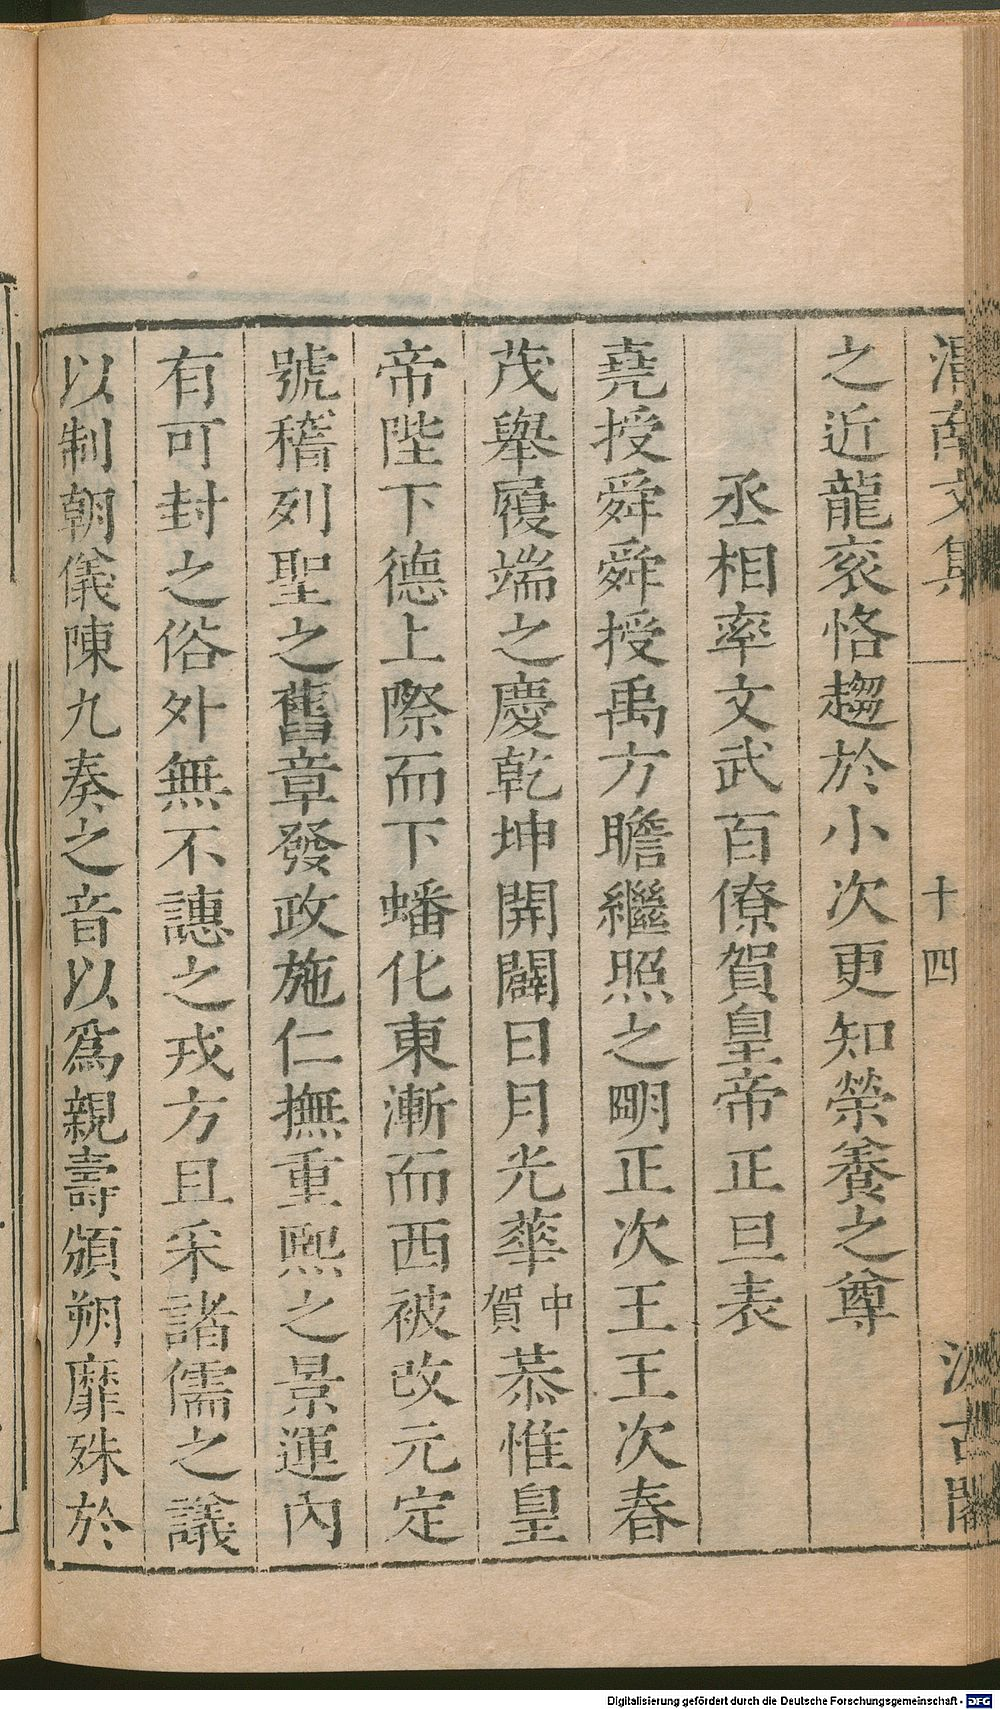 渭南文集 十四 汲古閣
之近龍衮恪趨於小次更知榮養之尊
丞相率文武百僚賀皇帝正旦表
堯授舜舜授禹方瞻繼照之明正次王王次春
茂舉履端之慶乾坤開闢日月光華中賀恭惟皇
帝陛下德上際而下蟠化東漸而西被改元定
號稽列聖之舊章發政施仁撫重熙之景運內
有可封之俗外無不譓之戎方且采諸儒之議
以制朝儀陳九奏之音以爲親壽頒朔靡殊於
Digitalisierung gefördert durch die Deutsche Forschungsgemeinschaft - DFG